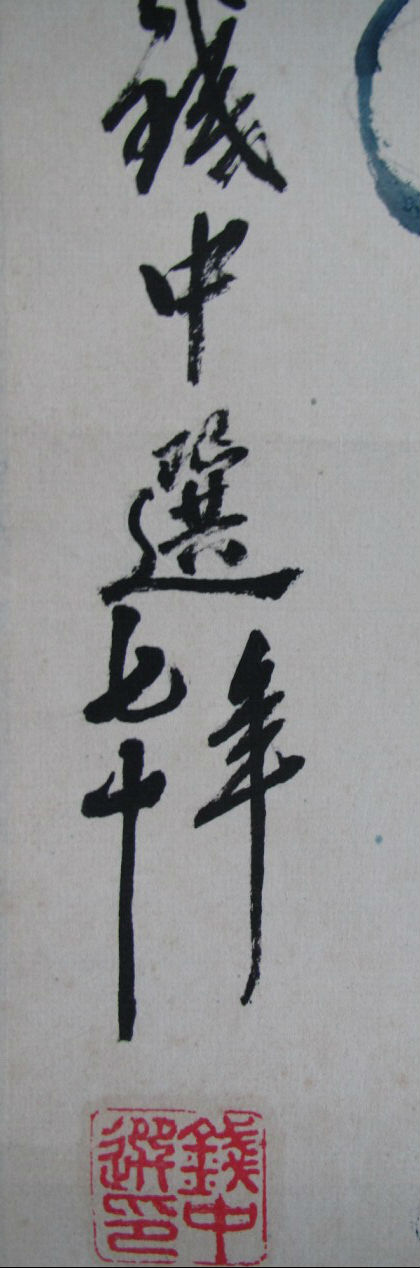 錢中選
年
七十
錢中
選印